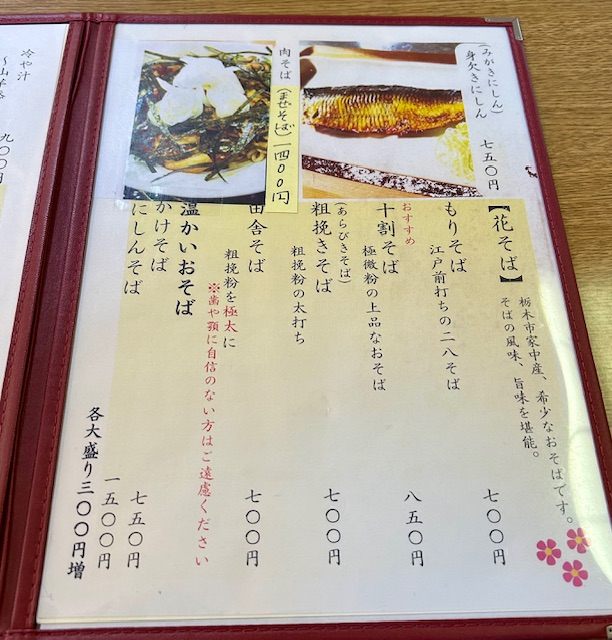 (みがきにしん)
身欠きにしん
七五〇円
肉そば
(まぜそば)一四〇〇円
【花そば】
栃木市家中産、希少なおそばです。
そばの風味、旨味を堪能。
もりそば
江戸前打ちの二八そば
七〇〇円
おすすめ
十割そば
極微粉の上品なおそば
八五〇円
(あらびきそば)
粗挽きそば
粗挽粉の太打ち
七〇〇円
田舎そば
粗挽粉を極太に
※歯や顎に自信のない方はご遠慮ください
七〇〇円
温かいおそば
かけそば
七五〇円
にしんそば
一五〇〇円
各大盛り三〇〇円増
冷や汁
九〇〇円